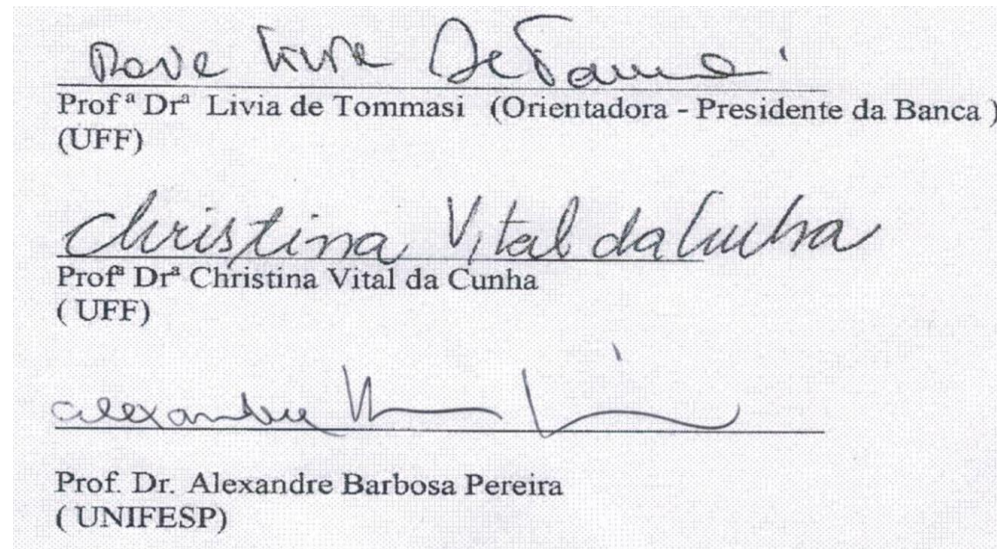 De Tommasi
Profª Drª Livia de Tommasi (Orientadora - Presidente da Banca )
(UFF)
Christina Vital da Cunha
Profª Drª Christina Vital da Cunha
( UFF)
alexandre
Prof. Dr. Alexandre Barbosa Pereira
( UNIFESP)